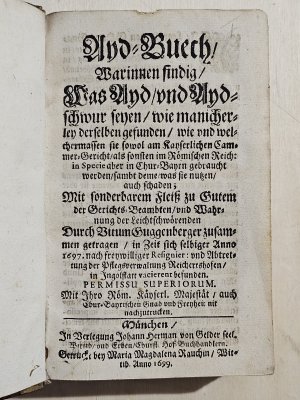 Ayd-Buech/
Warinnen findig/
Was Ayd/ vnd Ayd-
schwur seyen/ wie manicher-
ley derselben gefunden/ wie vnd wel-
chermassen sie sowol am Kayserlichen Cam-
mer-Gericht/ als sonsten im Römischen Reich:
in Specie aber in Chur-Bayrn gebraucht
werden/ sambt deme was sie nutzen/
auch schaden;
Mit sonderbarem Fleiß zu Gutem
der Gerichts-Beambten/ vnd Wahr-
nung der Leichtschwörenden.
Durch Vitum Guggenberger zusam-
men getragen/ in Zeit sich selbiger Anno
1697. nach freywilliger Resignier: vnd Abtret-
tung der Pflegsverwaltung Reichertshofen/
in Ingolstatt vacierent befunden.
PERMISSU SUPERIORUM.
Mit Ihro Röm. Käyserl. Majestät/ auch
Chur-Bayrischen Gnad vnd Freyheit nit
nachzutrucken.
München/
In Verlegung Johann Herman von Gelder seel.
Wittib/ vnd Erben/ Churfl. Hof-Buchhandlern.
Getruckt/ bey Maria Magdalena Rauchin/ Wit-
tib. Anno 1699.